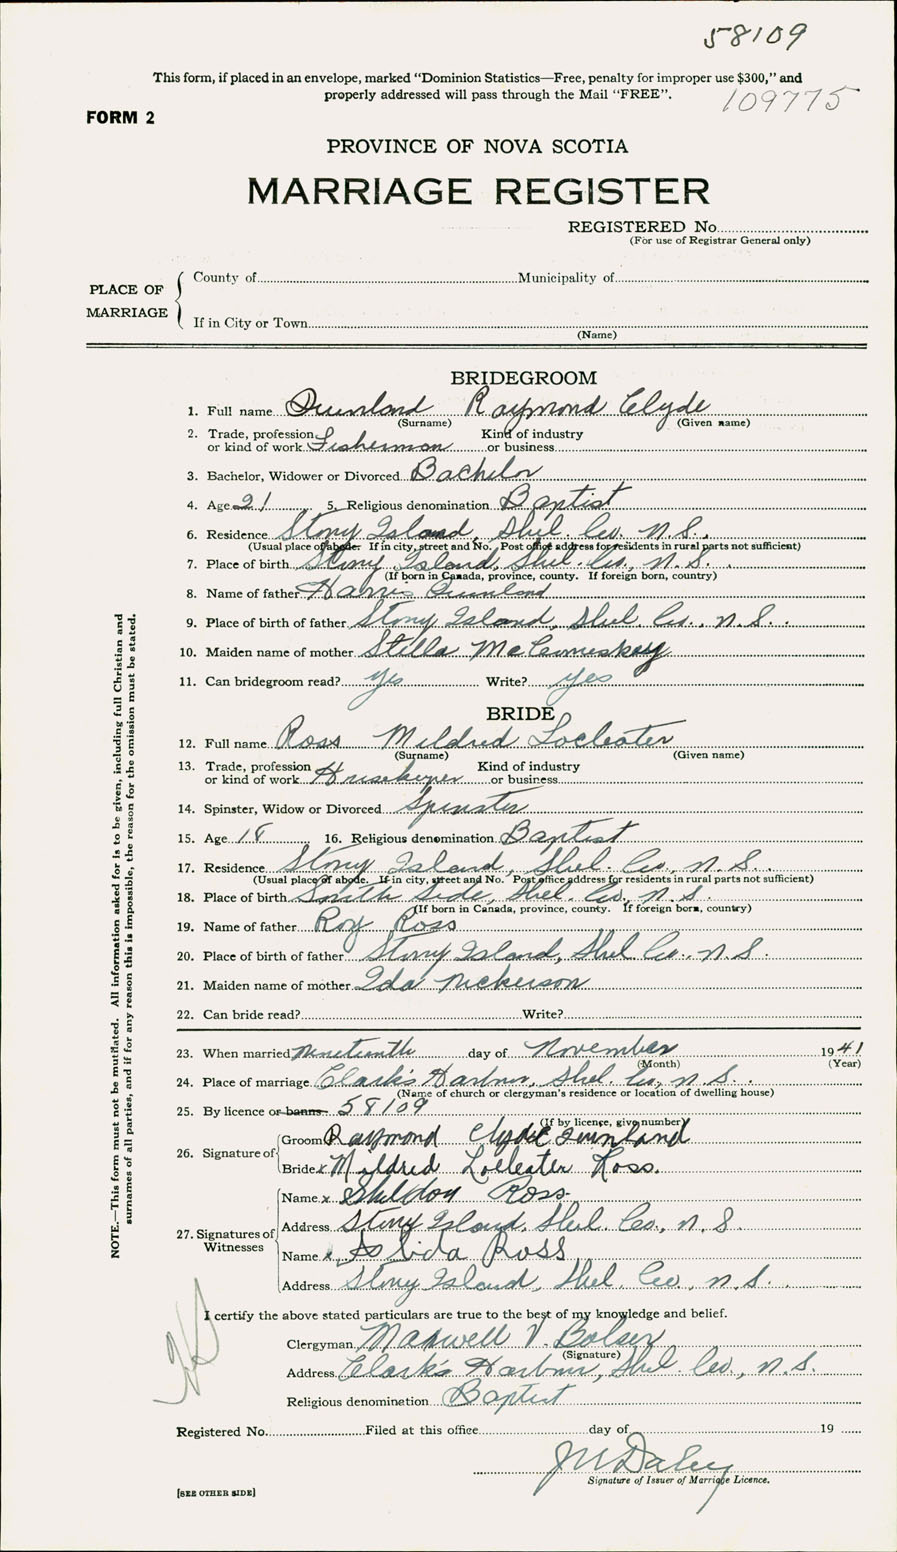 58109
This form, if placed in an envelope, marked "Dominion Statistics—Free, penalty for improper use $300," and
properly addressed will pass through the Mail "FREE".
109775
FORM 2
PROVINCE OF NOVA SCOTIA
MARRIAGE REGISTER
REGISTERED No.
(For use of Registrar General only)
PLACE OF MARRIAGE
County of Municipality of
If in City or Town
(Name)
BRIDEGROOM
1. Full name Quinland Raymond Clyde
(Surname) (Given name)
2. Trade, profession Kind of industry
or kind of work Fisherman or business
3. Bachelor, Widower or Divorced Bachelor
4. Age 21 5. Religious denomination Baptist
6. Residence Stony Island, Shel. Co. N.S.
(Usual place of abode. If in city, street and No. Post office address for residents in rural parts not sufficient)
7. Place of birth Stony Island, Shel. Co., N.S.
(If born in Canada, province, county. If foreign born, country)
8. Name of father Harris Quinland
9. Place of birth of father Stony Island, Shel. Co., N.S.
10. Maiden name of mother Stella
11. Can bridegroom read? yes Write? yes
BRIDE
12. Full name Ross Mildred Locleater
(Surname) (Given name)
13. Trade, profession Kind of industry
or kind of work Housekeeper or business
14. Spinster, Widow or Divorced Spinster
15. Age 18 16. Religious denomination Baptist
17. Residence Stony Island, Shel. Co., N.S.
(Usual place of abode. If in city, street and No. Post office address for residents in rural parts not sufficient)
18. Place of birth South Side, Shel. Co., N.S.
(If born in Canada, province, county. If foreign born, country)
19. Name of father Roy Ross
20. Place of birth of father Stony Island, Shel. Co., N.S.
21. Maiden name of mother Ida Nickerson
22. Can bride read? Write?
23. When married nineteenth day of November 1941
(Month) (Year)
24. Place of marriage Clark's Harbour, Shel. Co., N.S.
(Name of church or clergyman's residence or location of dwelling house)
25. By licence or banns 58109
(If by licence, give number)
26. Signature of
Groom Raymond Clyde Quinland
Bride x Mildred Locleater Ross.
27. Signatures of Witnesses
Name x Sheldon Ross
Address Stony Island, Shel. Co., N.S.
Name x Ross
Address Stony Island, Shel. Co., N.S.
I certify the above stated particulars are true to the best of my knowledge and belief.
Clergyman Maxwell V. Bolser
(Signature)
Address Clark's Harbour, Shel. Co., N.S.
Religious denomination Baptist
Registered No. Filed at this office day of 19
J M Daley
Signature of Issuer of Marriage Licence.
[SEE OTHER SIDE]
NOTE.—This form must not be mutilated. All information asked for is to be given, including full Christian and
surnames of all parties, and if for any reason this is impossible, the reason for the omission must be stated.